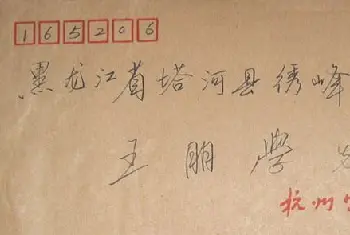 165206
黑龙江省塔河县绣峰
王朋學
杭州